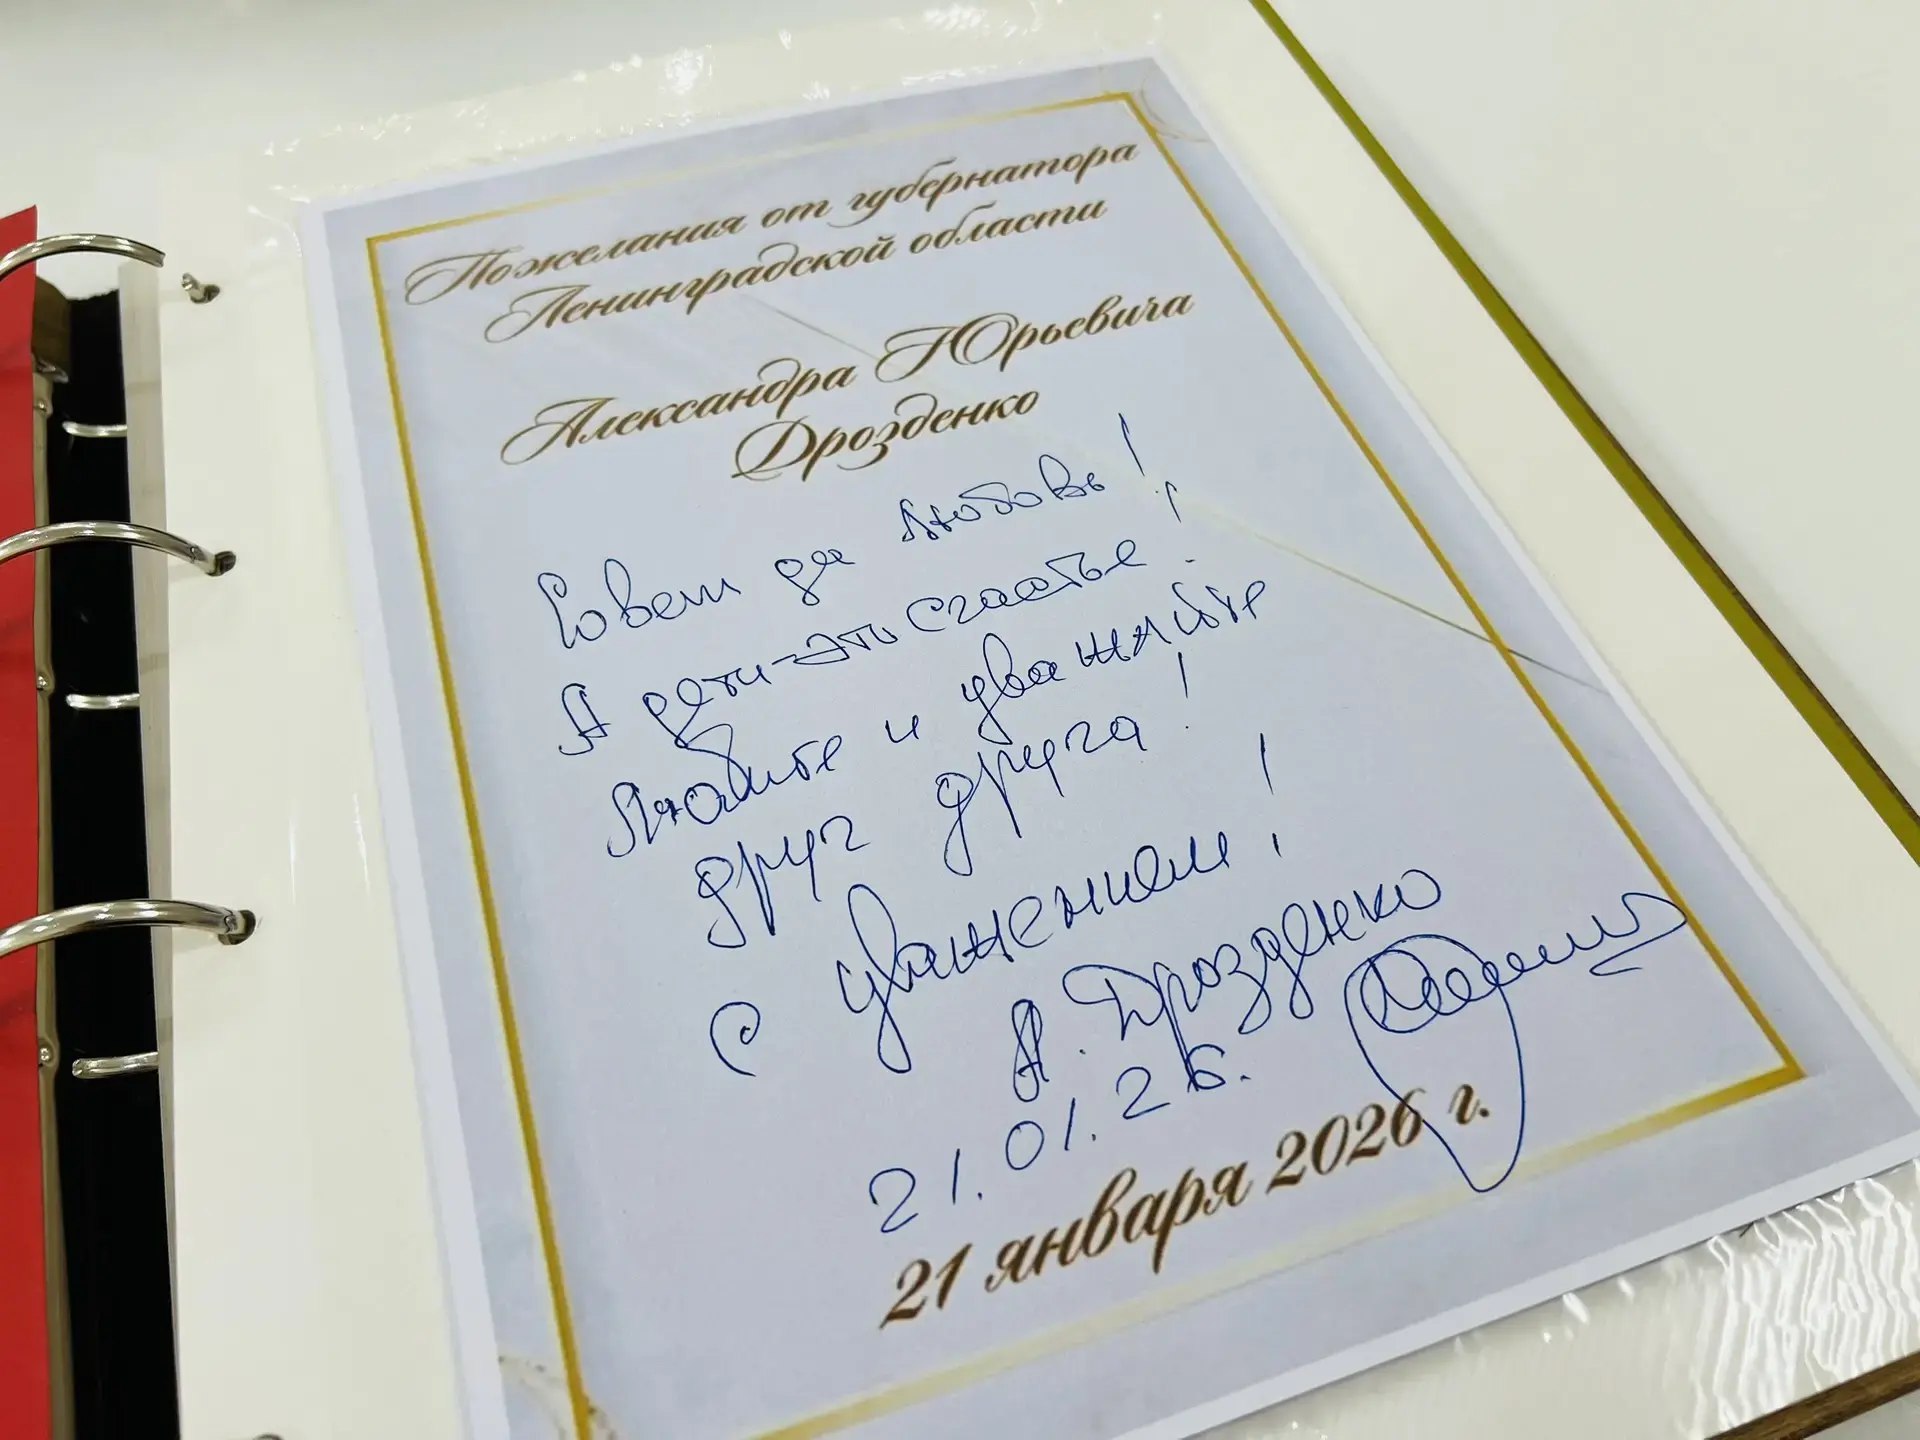 Пожелания от губернатора
Ленинградской области
Александра Юрьевича
Дрозденко
Совет да любовь!
А дети-это счастье!
Любите и уважайте
друг друга!
С уважением!
А. Дрозденко
21.01.26.
21 января 2026 г.